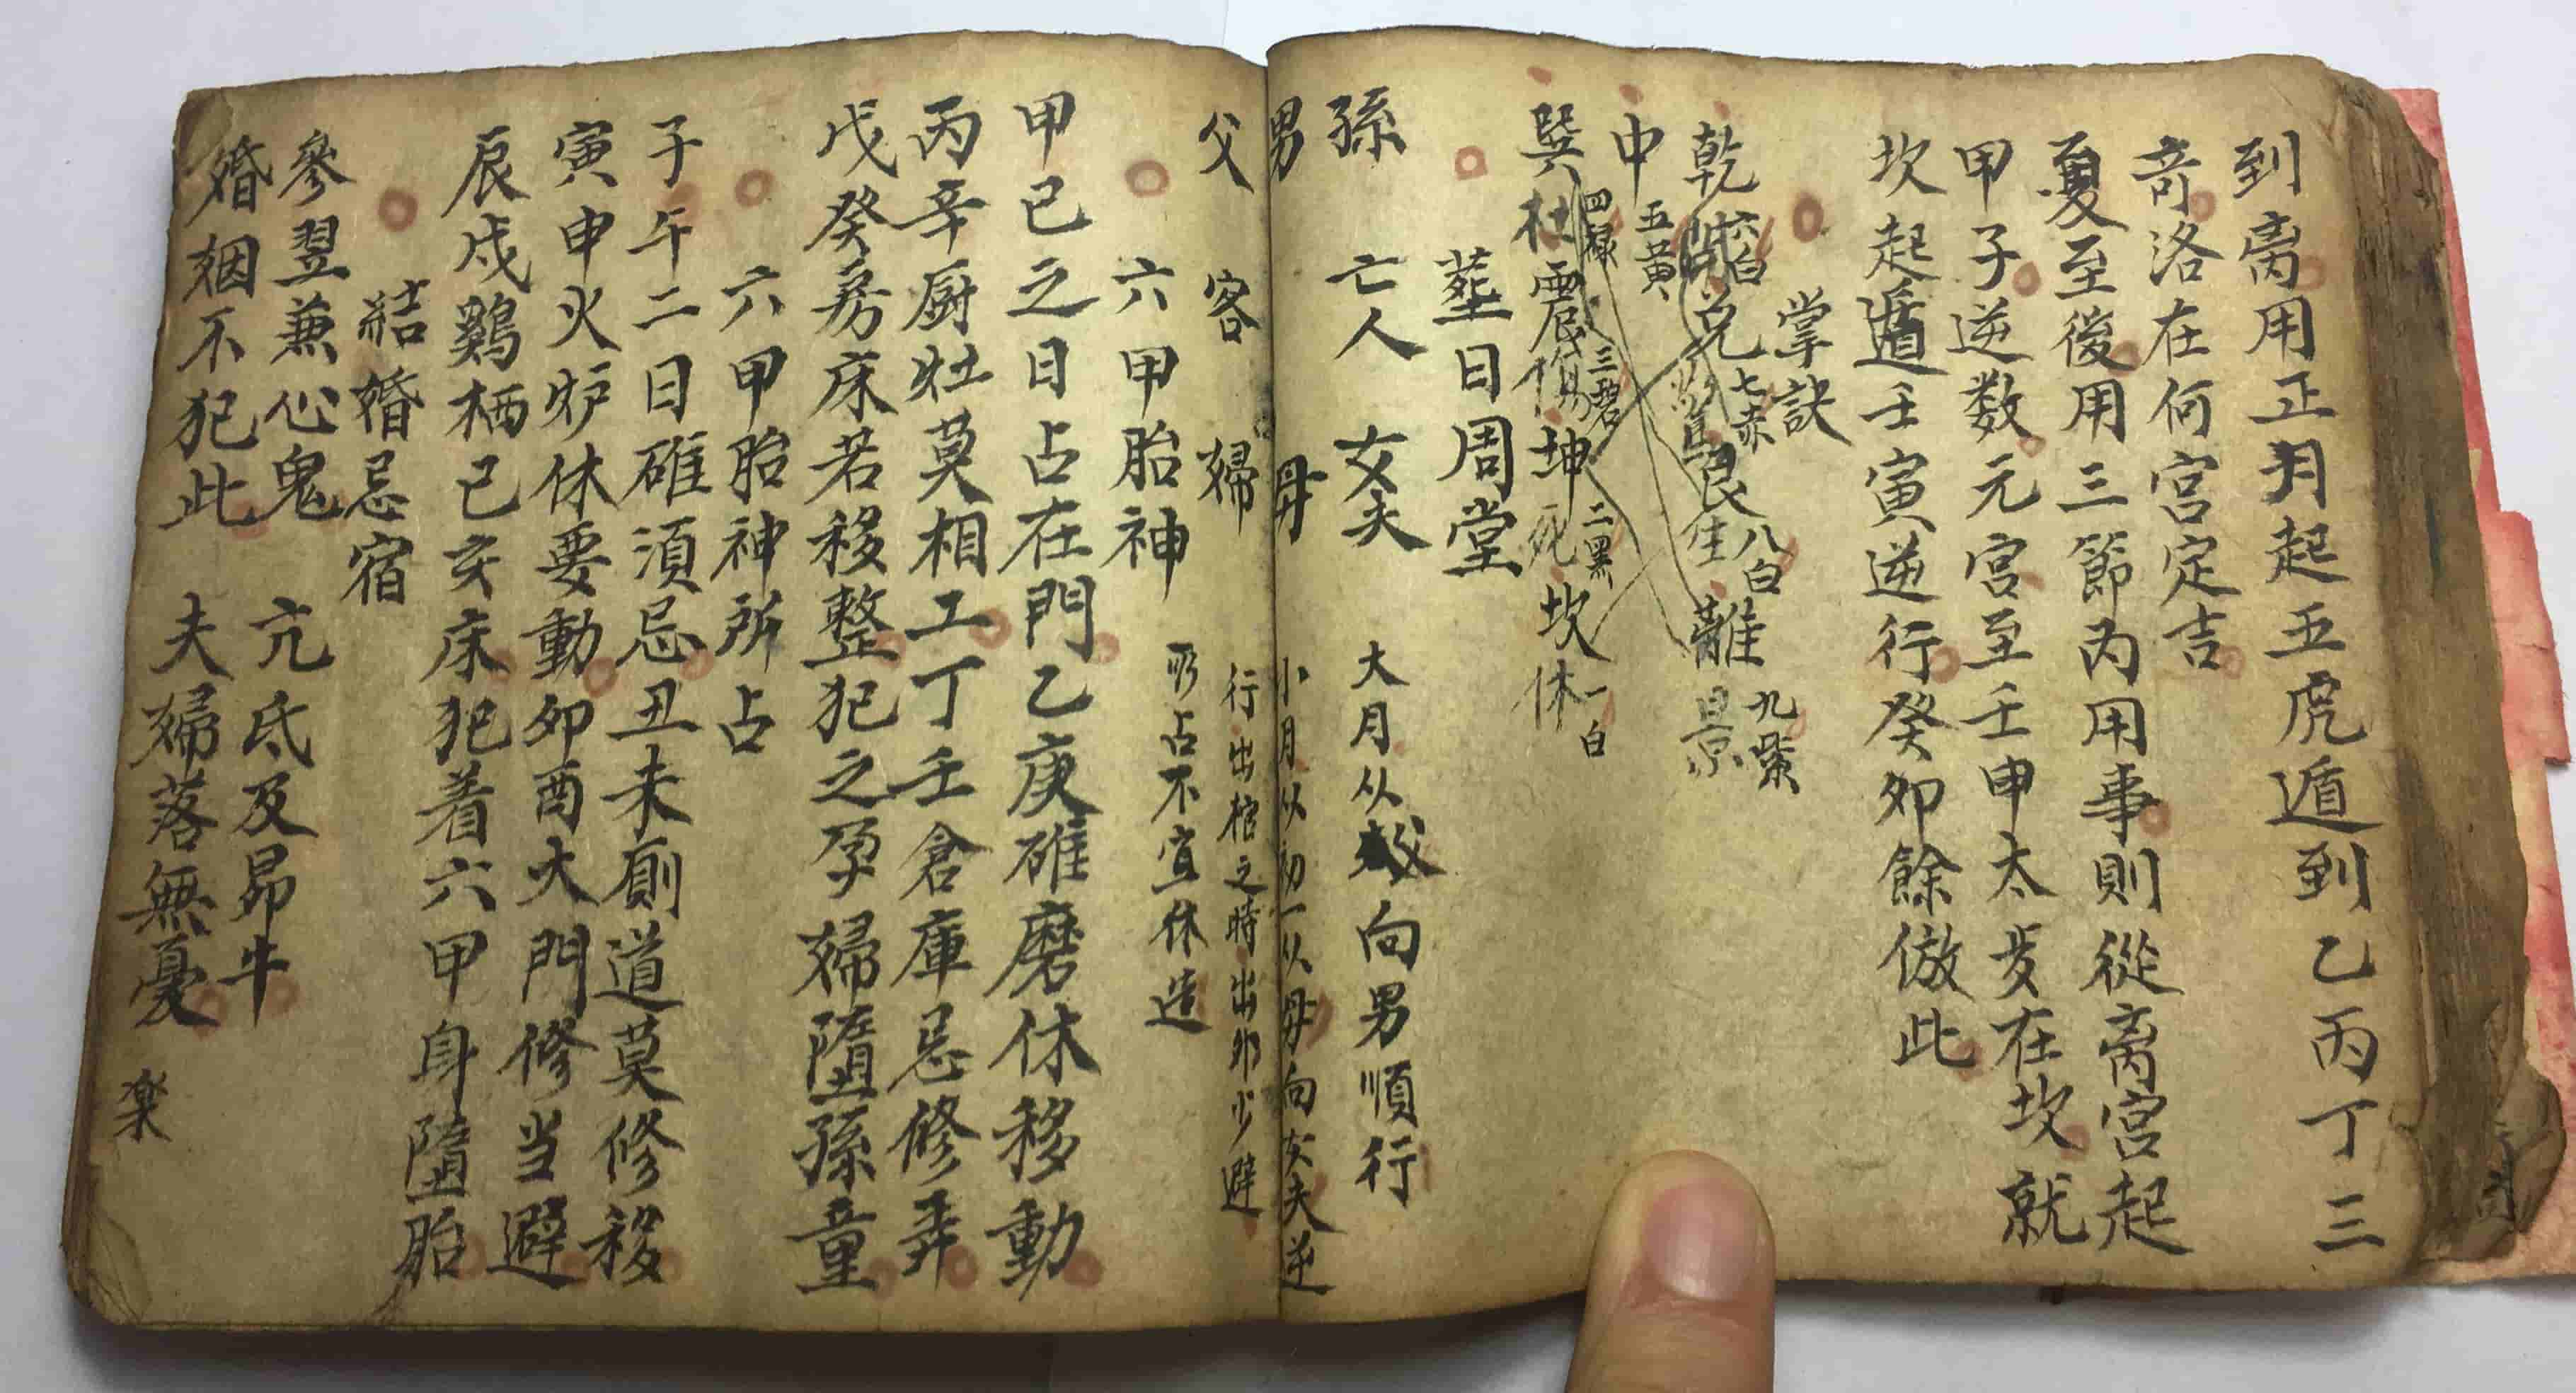 到离用正月起五虎遁到乙丙丁三
奇洛在何宮定吉
夏至後用三節内用事則從离宮起
甲子逆数元宮至壬申太岁在坎就
坎起遁壬寅逆行癸卯餘倣此
掌訣
乾六白開兑七赤驚艮八白生離九紫景
中五黄
巽四禄杜震三碧傷坤二黑死坎一白休
塟日周堂
孫 亡人 女夫 大月从父向男順行
男 母 小月从初一从母向女夫逆
父 客 婦 行出棺之時出外少避
六甲胎神 所占不宜休造
甲已之日占在門乙庚碓磨休移動
丙辛厨灶莫相工丁壬倉庫忌修弄
戊癸房床若移整犯之孕婦隨孫童
六甲胎神所占
子午二日碓須忌丑未厠道莫修移
寅申火炉休要動卯酉大門修当避
辰戌鷄栖已亥床犯着六甲身隨胎
結婚忌宿
參翌兼心鬼 亢氐及昴牛
婚姻不犯此 夫婦落無憂
楽